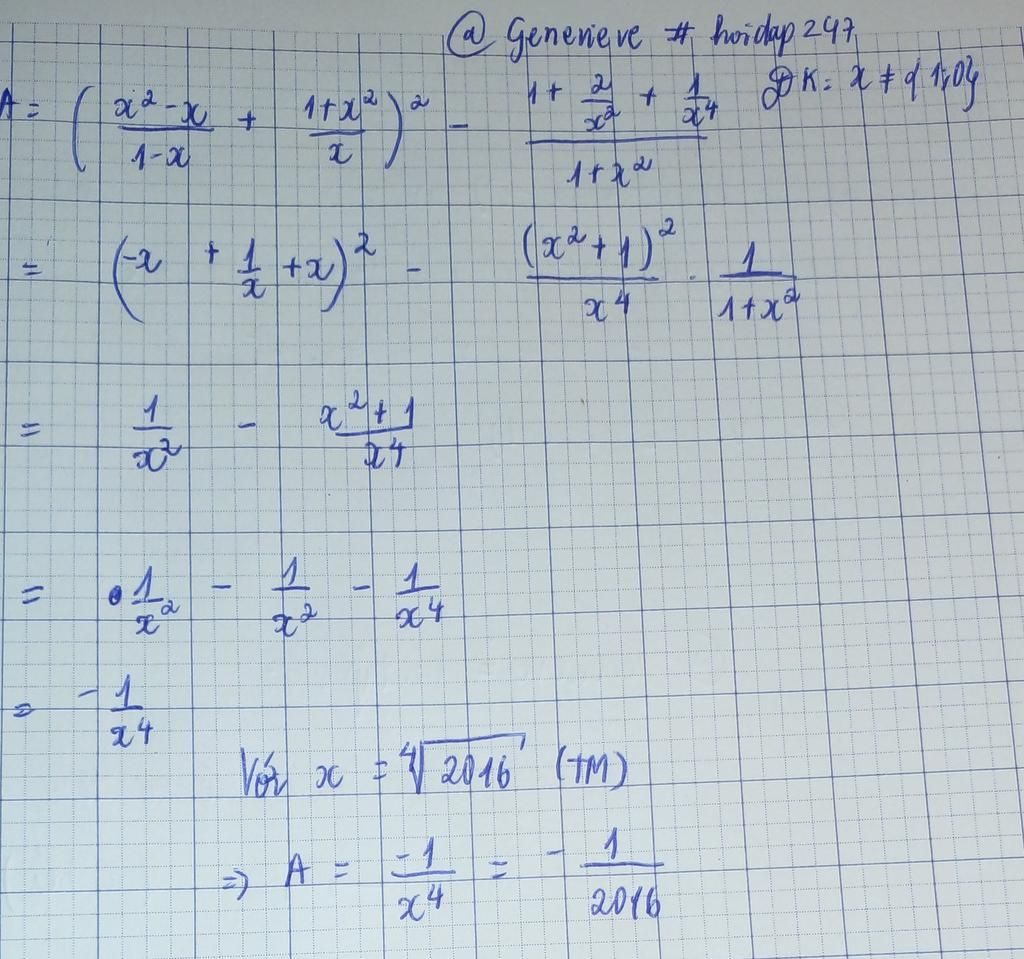 @ Genenieve # hoidap 247
A = ( (x² - x)/(1 - x) + (1 + x²)/x )² - (1 + 2/x² + 1/x⁴)/(1 + x²) ĐK: x ≠ {1;0}
= (-x + 1/x + x)² - (x² + 1)²/x⁴ . 1/(1 + x²)
= 1/x² - (x² + 1)/x⁴
= 1/x² - 1/x² - 1/x⁴
= - 1/x⁴
Với x = ⁴√2016 (TM)
⇒ A = -1/x⁴ = - 1/2016